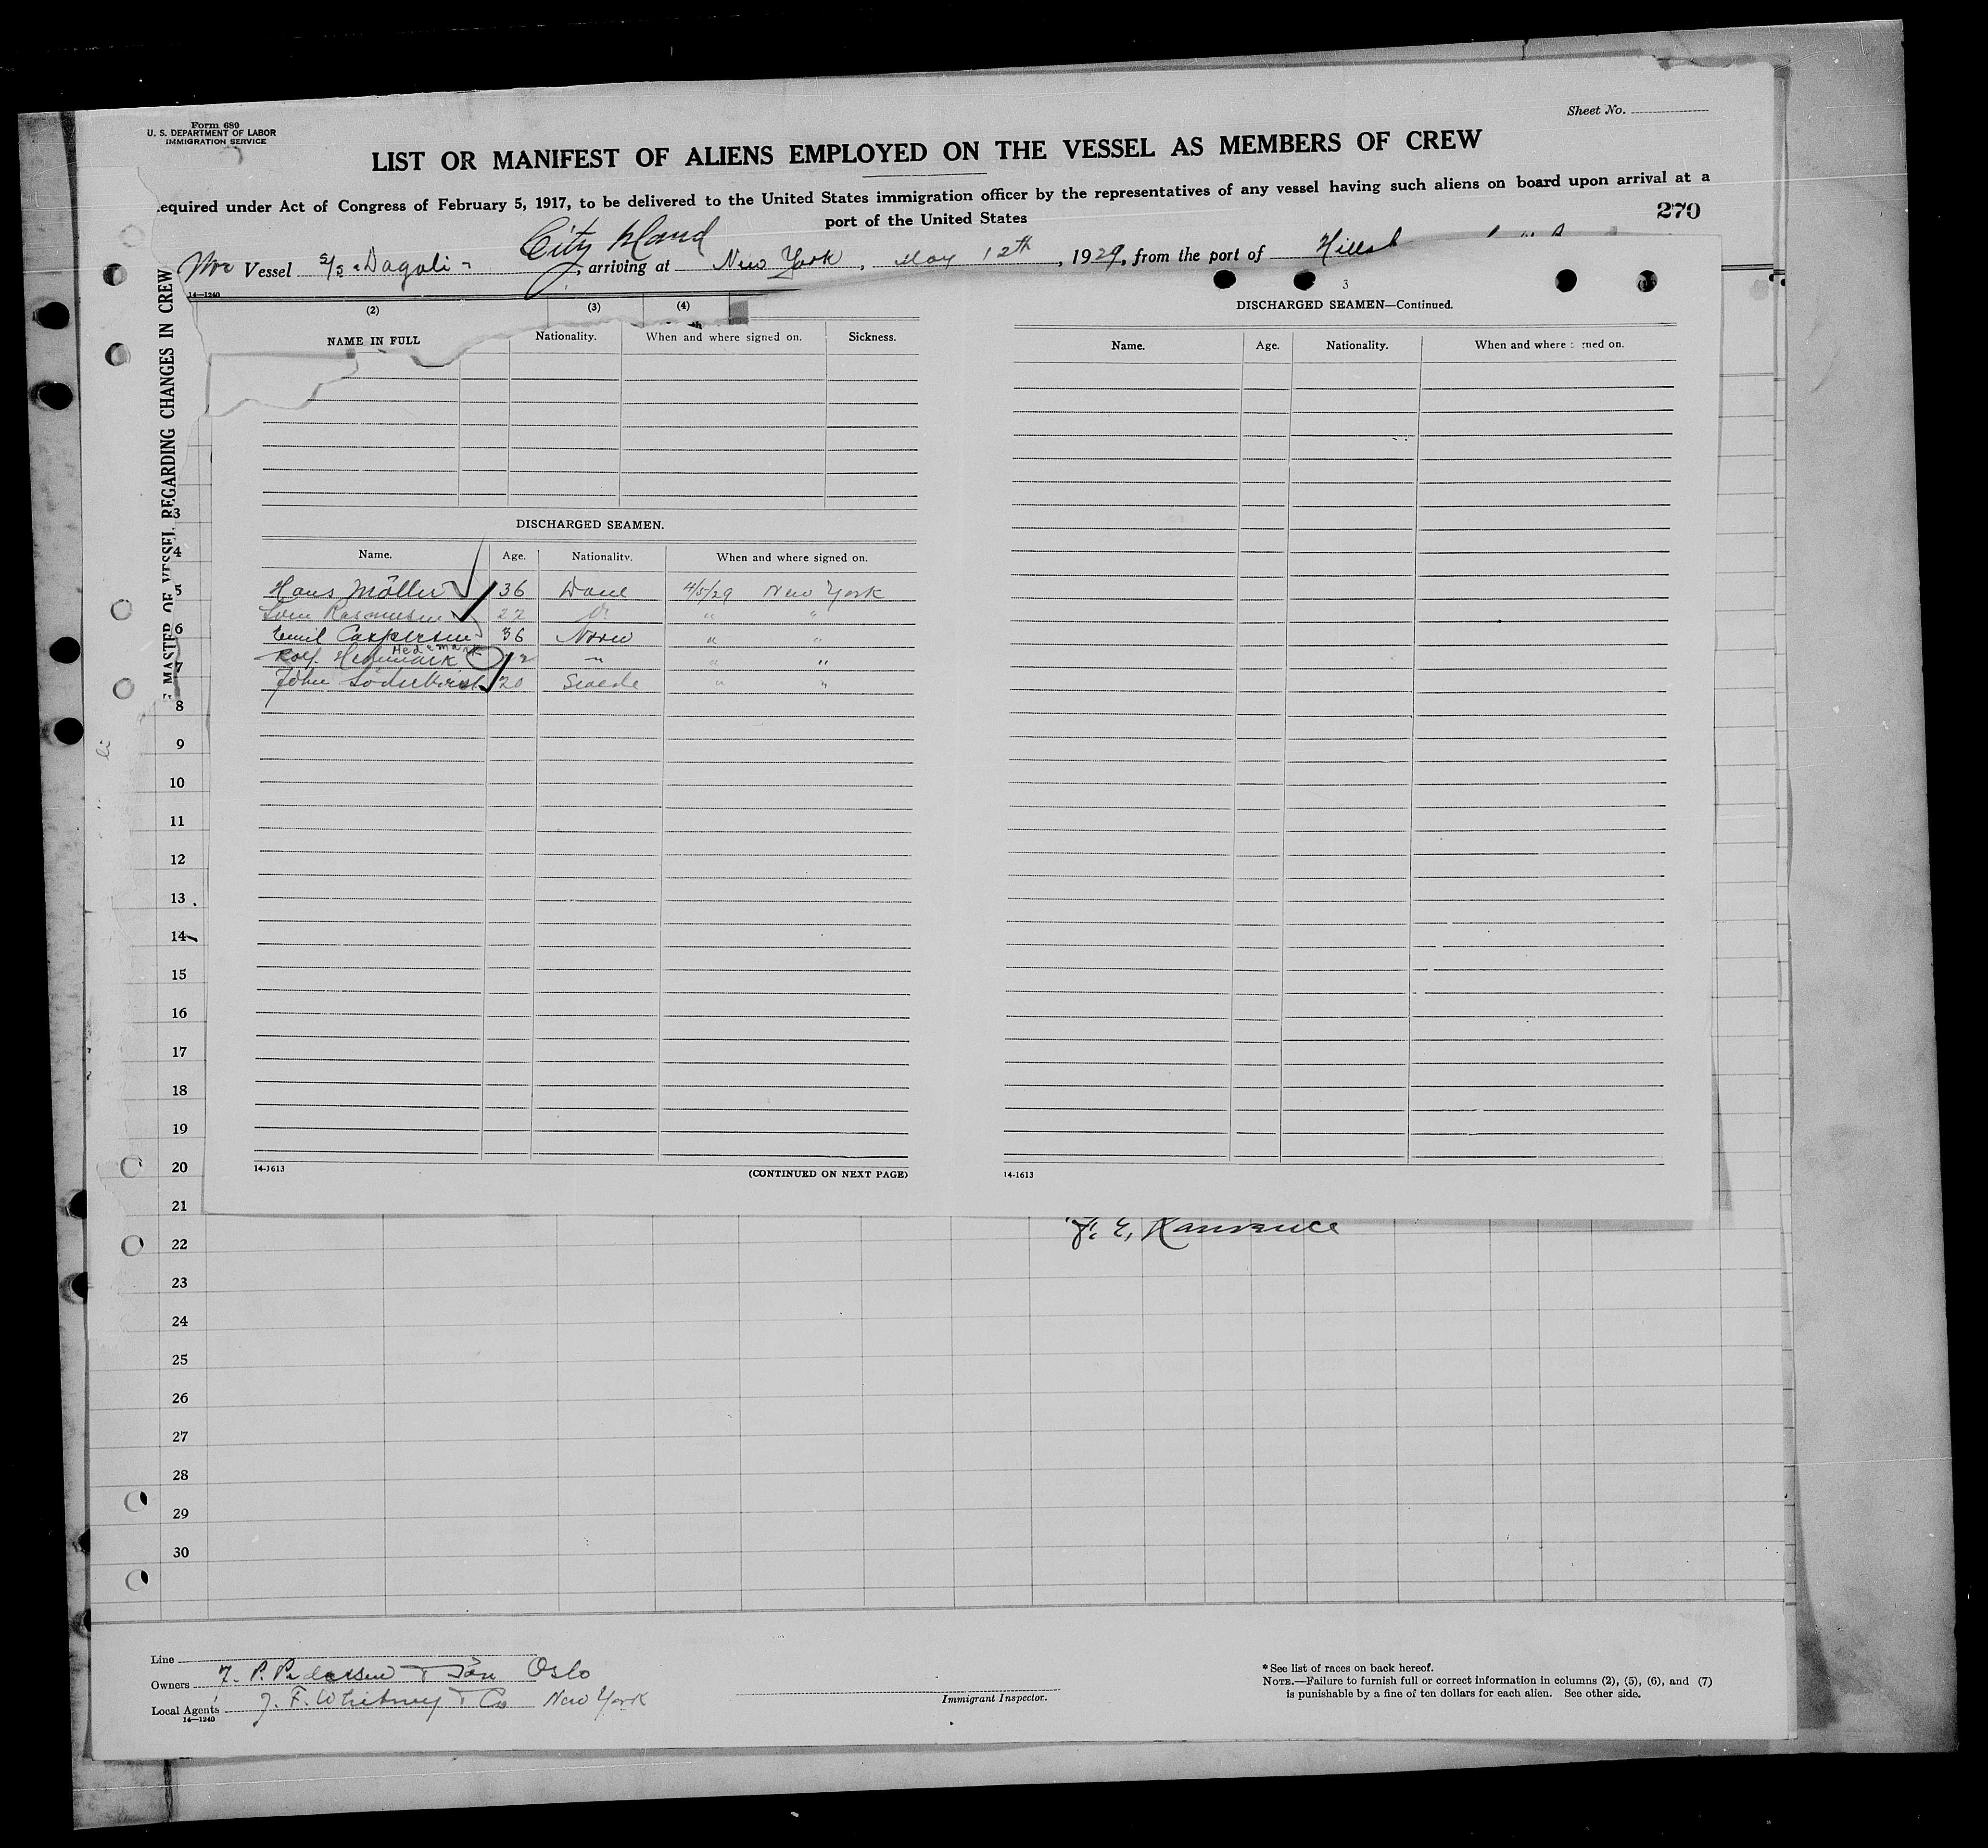 Form 680
U. S. DEPARTMENT OF LABOR
IMMIGRATION SERVICE
Sheet No.
LIST OR MANIFEST OF ALIENS EMPLOYED ON THE VESSEL AS MEMBERS OF CREW
equired under Act of Congress of February 5, 1917, to be delivered to the United States immigration officer by the representatives of any vessel having such aliens on board upon arrival at a
port of the United States
270
City Island
Nor Vessel S/S "Dagali", arriving at New York, May 12th, 1929, from the port of
14—1240
(2) (3) (4)
NAME IN FULL Nationality. When and where signed on. Sickness.
MASTER OF VESSEL REGARDING CHANGES IN CREW
DISCHARGED SEAMEN.
Name. Age. Nationality. When and where signed on.
Hans Möller 36 Dane 4/5/29 New York
Rasmussen 22 " "
Emil Caspersen 36 Norw " "
Rolf Hedemark Hedemark " " "
John 20 Swede " "
14-1613 (CONTINUED ON NEXT PAGE)
3
DISCHARGED SEAMEN—Continued.
Name. Age. Nationality. When and where signed on.
14-1613
3
4
5
6
7
8
9
10
11
12
13
14
15
16
17
18
19
20
21
22
23
24
25
26
27
28
29
30
Line
Owners Oslo
Local Agents J. F. Whitney & Co New York
14—1240
Immigrant Inspector.
* See list of races on back hereof.
NOTE.—Failure to furnish full or correct information in columns (2), (5), (6), and (7)
is punishable by a fine of ten dollars for each alien. See other side.